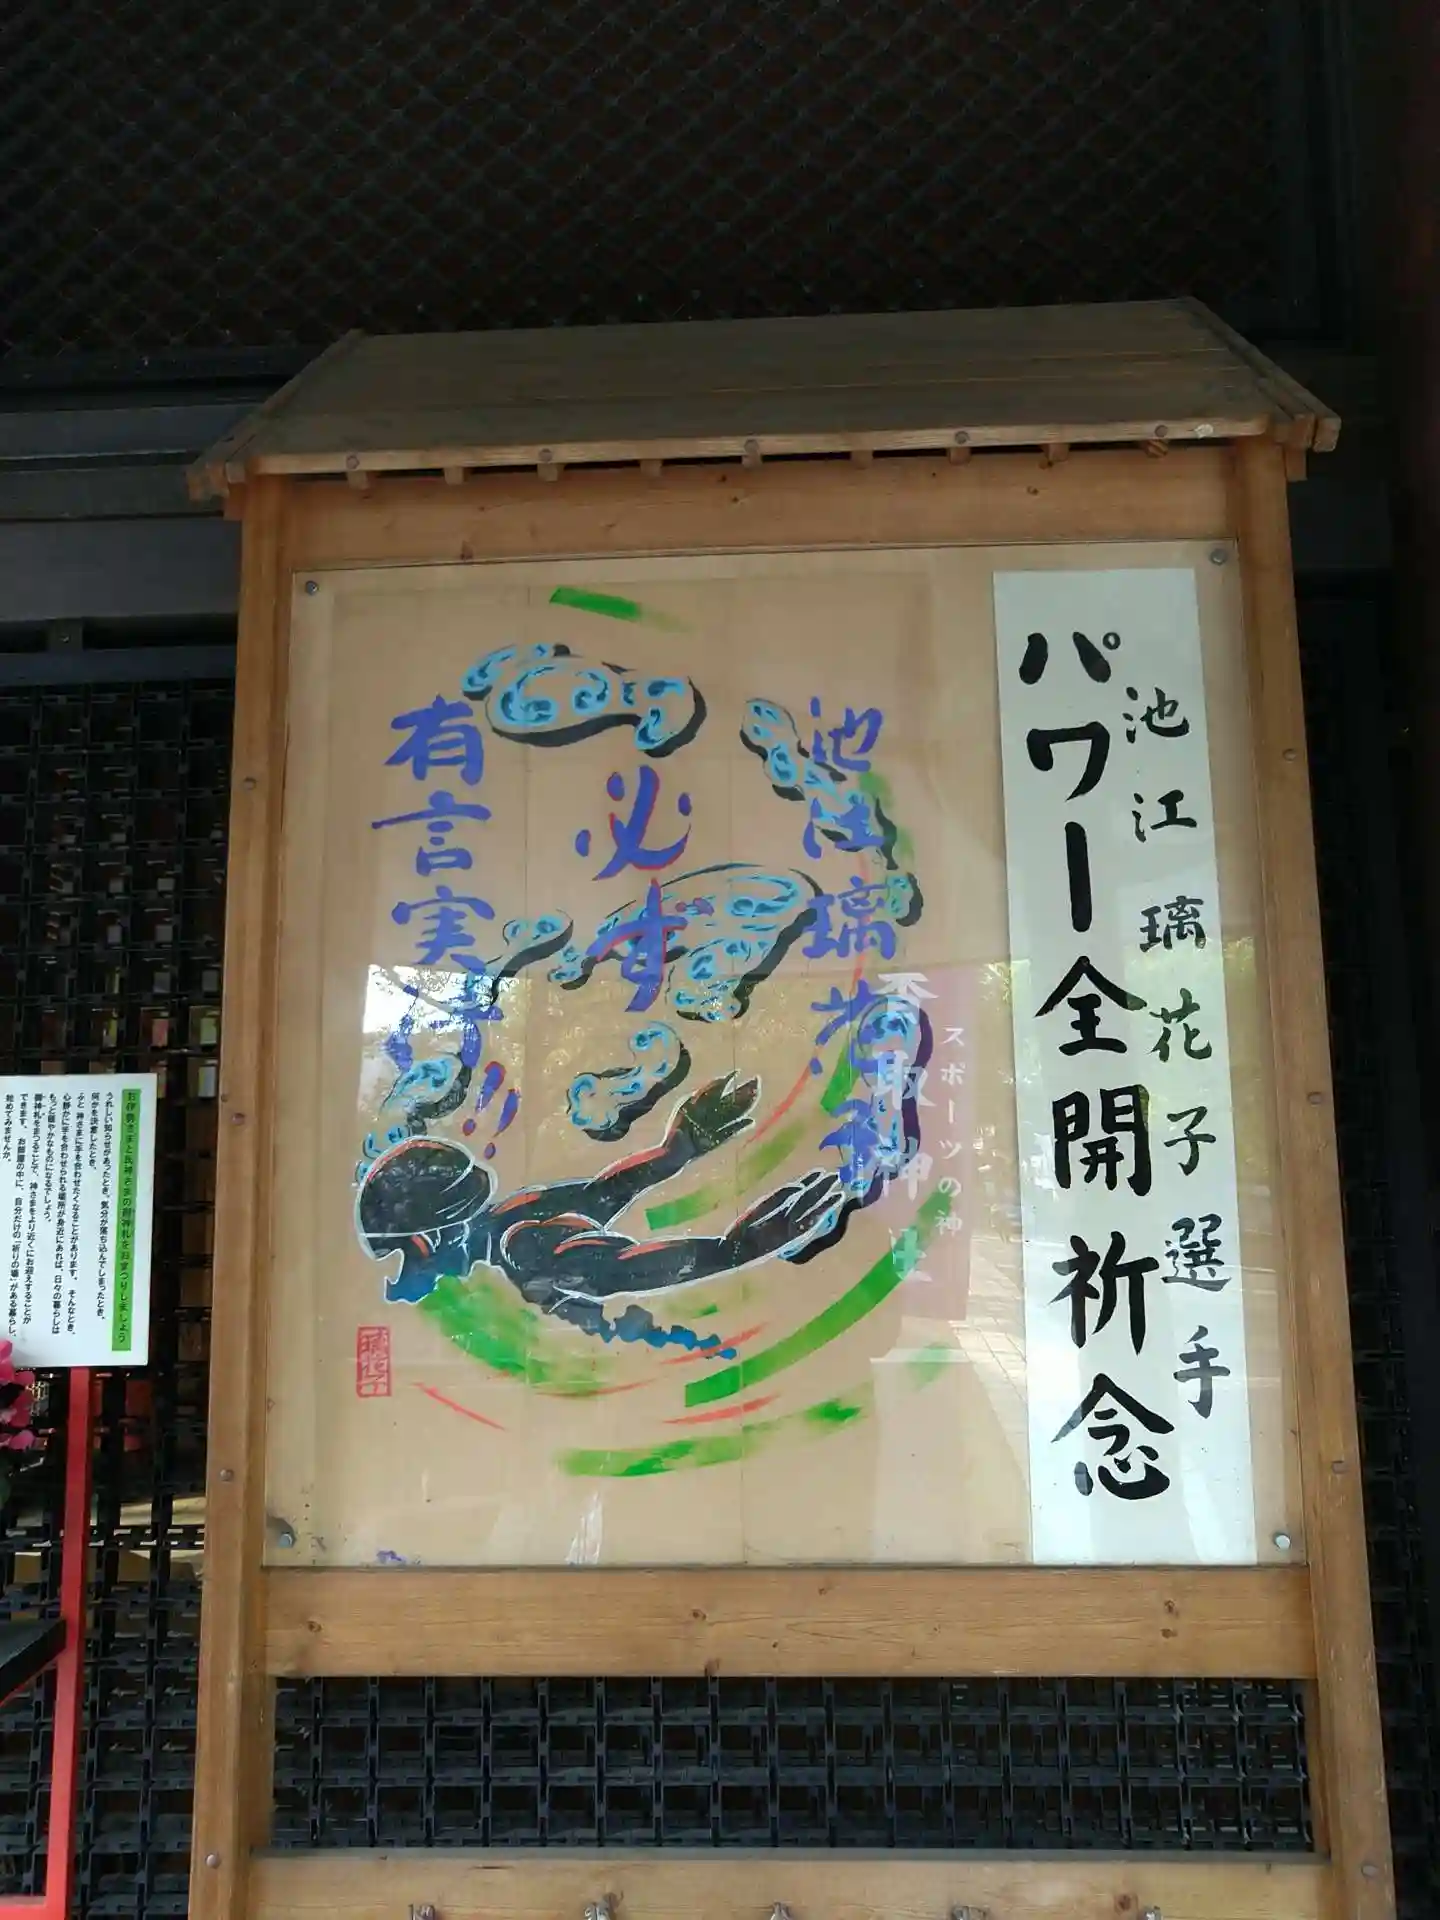 池江璃花子選手
パワー全開祈念
池江璃花子
必ず
有言実行!!
スポーツの神
香取神社
お伊勢さまと氏神さまの御神札をおまつりしましょう
うれしい知らせがあったとき、気分が落ち込んでしまったとき、
何かを決意したとき、
ふと 神さまに手を合わせたくなることがあります。そんなとき、
心静かに手を合わせられる場所が身近にあれば、日々の暮らしは
もっと健やかなものになるでしょう。
御神札をまつることで、神さまをより近くにお迎えすることが
できます。お部屋の中に、自分だけの「祈りの場」がある暮らし、
始めてみませんか。